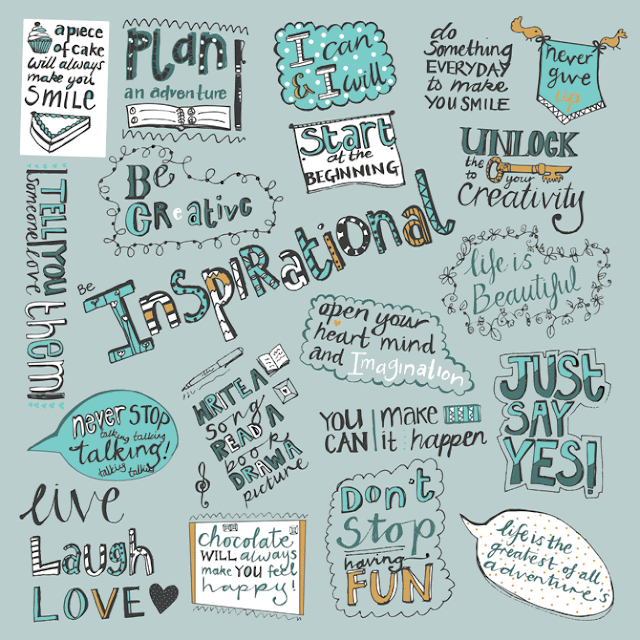 a piece
of cake
will always
make you
SMILE
Plan
an adventure
I can
& I will
do
Something
EVERYDAY
to make
YOU SMILE
never
give
up
Start
at the
BEGINNING
UNLOCK
the
to your
Creativity
Be
GReative
TELL YOU
Someone love
them
Be
InSPIRational
life is
Beautiful
open your
heart mind
and Imagination
WRITE A
Song
READ A
book
DRAW A
picture
YOU make
CAN it happen
JUST
SAY
YES!
never STOP
talking talking
talking!
talking talking
live
Laugh
LOVE
chocolate
WILL always
make YOU feel
happy!
Don't
Stop
having
FUN
life is the
greatest of all
adventure's